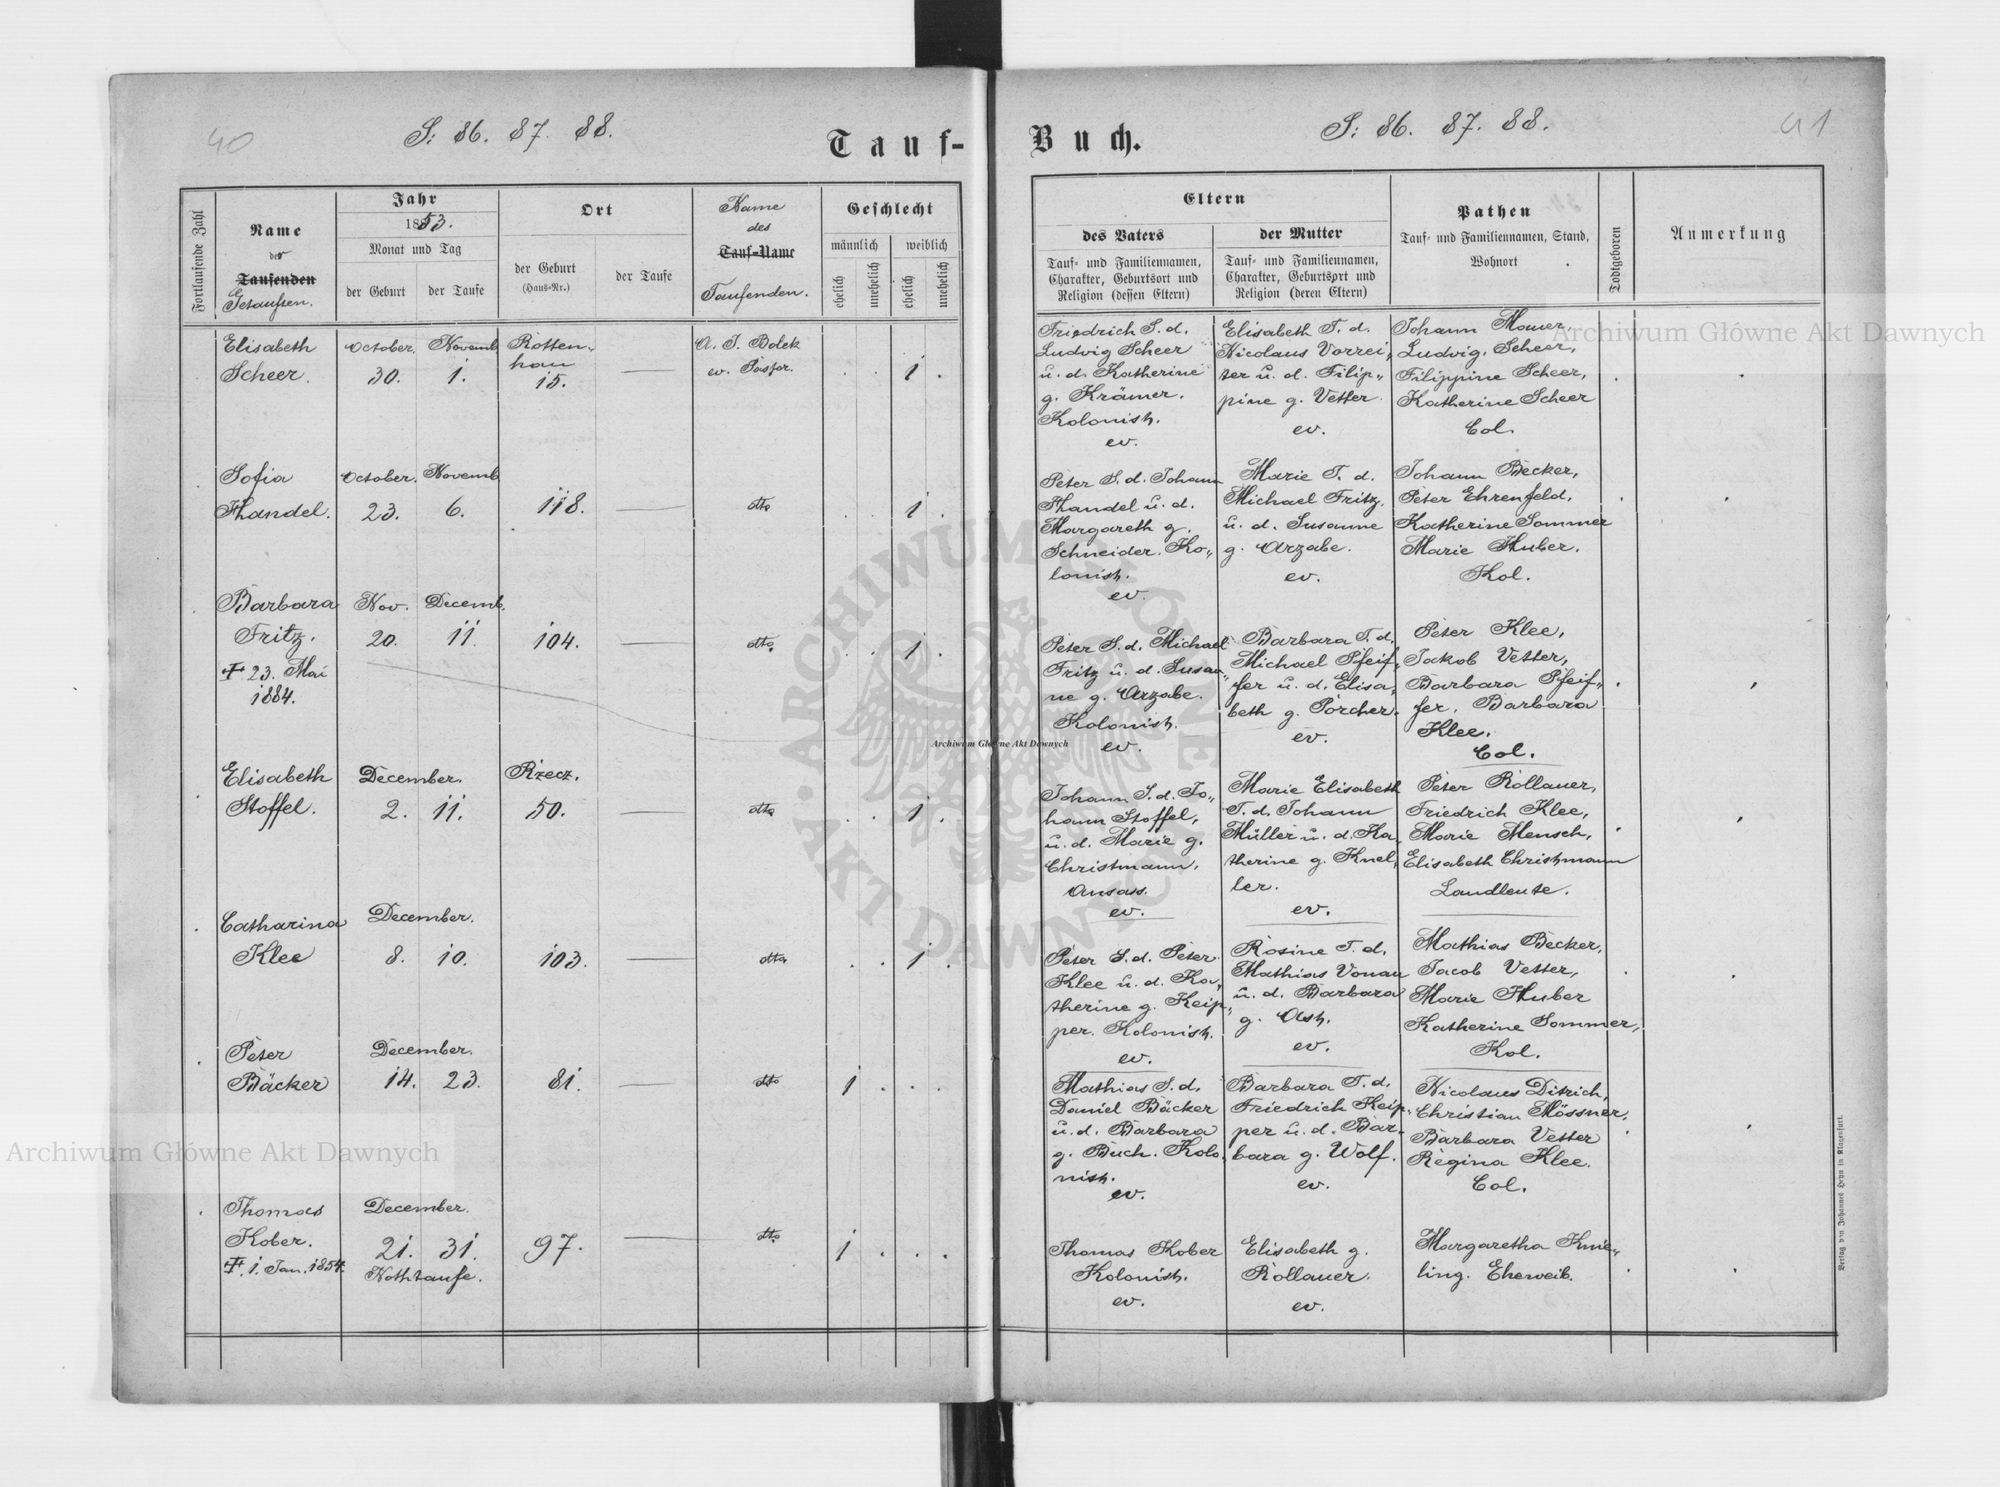 40
S: 86. 87. 88.
Tauf-
Fortlaufende Zahl
Name
der
Taufenden
Getauften.
Jahr
1853.
Monat und Tag
der Geburt
der Taufe
Ort
der Geburt
(Haus-Nr.)
der Taufe
Name
des
Tauf-Name
Taufenden.
Geschlecht
männlich
weiblich
ehelich
unehelich
ehelich
unehelich
Elisabeth
Scheer.
October.
30.
Novemb.
1.
Rotten-
hau
15.
A. T. Bolek
ev. Pastor.
1
Sofia
Handel.
October.
23.
Novemb
6.
118.
dto
1
Barbara
Fritz.
23. Mai
1884.
Nov.
20.
Decemb.
11.
104.
dto
1
Elisabeth
Stoffel.
December.
2. 11.
Rzecz.
50.
dto
1
Catharina
Klee
December.
8. 10.
103.
dto
1
Peter
Bäcker
December.
14. 23.
81.
dto
1
Thomas
Kober.
1. Jan. 1854.
December.
21. 31.
Nothtaufe.
97.
dto
1
Buch.
S: 86. 87. 88.
41
Eltern
des Vaters
Tauf- und Familiennamen,
Charakter, Geburtsort und
Religion (dessen Eltern)
der Mutter
Tauf- und Familiennamen,
Charakter, Geburtsort und
Religion (deren Eltern)
Pathen
Tauf- und Familiennamen, Stand,
Wohnort
Todtgeboren
Anmerkung
Friedrich S. d.
Ludvig Scheer
u. d. Katherine
g. Krämer.
Kolonist.
ev.
Elisabeth T. d.
Nicolaus Vorrei„
ter u. d. Filip„
pine g. Vetter.
ev.
Johann Mauer,
Ludvig Scheer,
Filippine Scheer,
Katherine Scheer
Col.
Peter S. d. Johann
Handel u. d.
Margareth g.
Schneider. Ko„
lonist.
ev.
Marie T. d.
Michael Fritz.
u. d. Susanne
g. Arzabe.
ev.
Johann Becker,
Peter Ehrenfeld,
Katherine Sommer
Marie Huber.
Kol.
Peter S. d. Michael
Fritz u. d. Susan„
ne g. Arzabe.
Kolonist.
ev.
Barbara T. d.
Michael Pfeif„
fer u. d. Elisa„
beth g. Porcher.
ev.
Peter Klee,
Jakob Vetter,
Barbara Pfeif„
fer, Barbara
Klee.
Col.
Johann S. d. Jo„
hann Stoffel,
u. d. Marie g.
Christmann,
Ansass.
ev.
Marie Elisabeth
T. d. Johann
Müller u. d. Ka„
therine g. Knel„
ler.
ev.
Peter Rollauer,
Friedrich Klee,
Marie Mensch,
Elisabeth Christmann
Landleute.
Peter S. d. Peter
Klee u. d. Ka„
therine g. Keip„
per. Kolonist.
ev.
Rosine T. d.
Mathias Vonau
u. d. Barbara
g. Ast.
ev.
Mathias Becker,
Jacob Vetter,
Marie Huber
Katherine Sommer,
Kol.
Mathias S. d.
Daniel Bäcker
u. d. Barbara
g. Buch. Kolo„
nist.
ev.
Barbara T. d.
Friedrich Keip„
per u. d. Bar„
bara g. Wolf.
ev.
Nicolaus Ditrich,
Christian Mössner,
Barbara Vetter
Regina Klee.
Col.
Thomas Kober
Kolonist.
ev.
Elisabeth g.
Rollauer.
ev.
Margaretha Knie„
ling. Eheweib.
Verlag von Johannes Heyn in Klagenfurt.
Archiwum Główne Akt Dawnych
Archiwum Główne Akt Dawnych
Archiwum Główne Akt Dawnych
ARCHIWUM GŁÓWNE AKT DAWNYCH